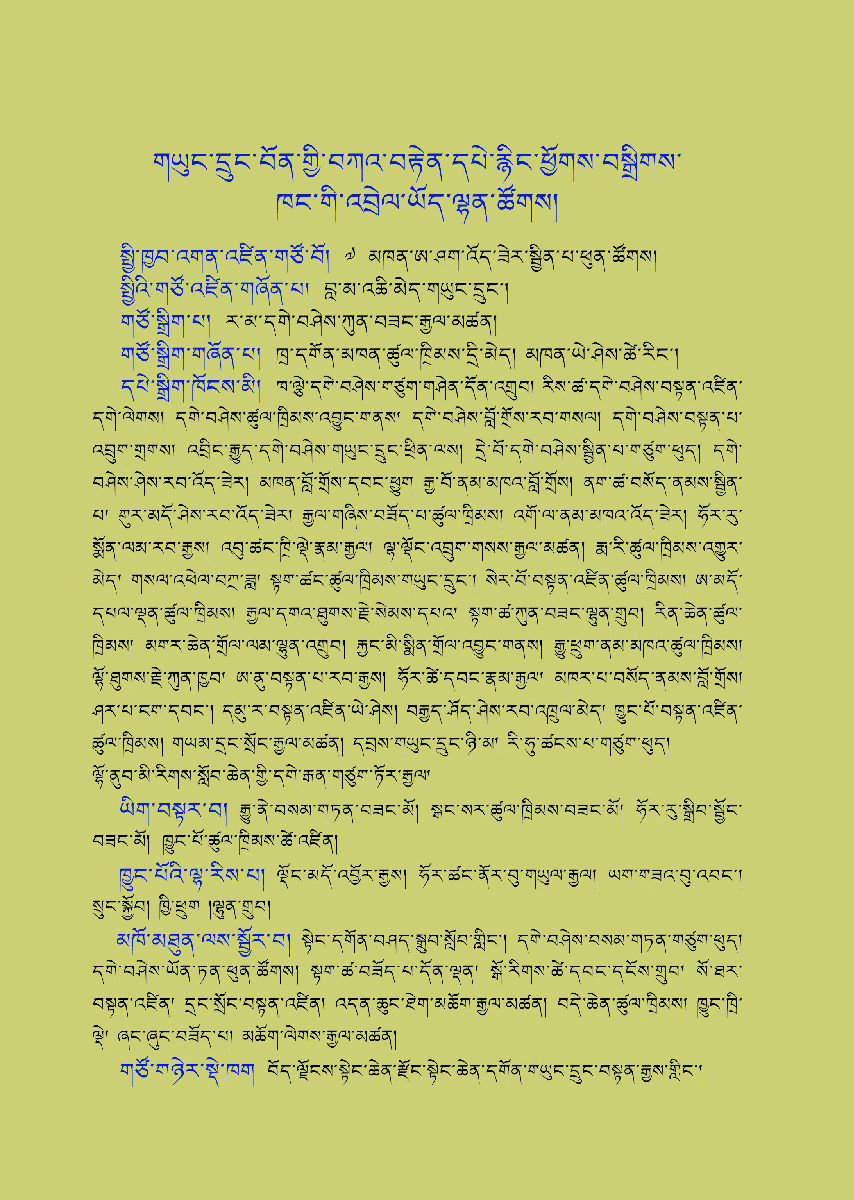 གཡུང་དྲུང་བོན་གྱི་བཀའ་བརྟེན་དཔེ་རྙིང་ཕྱོགས་བསྒྲིགས་
ཁང་གི་འབྲེལ་ཡོད་ལྷན་ཚོགས།
སྤྱི་ཁྱབ་འགན་འཛིན་གཙོ་བོ། ༧ མཁན་ཨ་ཤག་འོད་ཟེར་སྦྱིན་པ་ཕུན་ཚོགས།
སྤྱིའི་གཙོ་འཛིན་གཞོན་པ། བླ་མ་འཆི་མེད་གཡུང་དྲུང་།
གཙོ་སྒྲིག་པ། ར་མ་དགེ་བཤེས་ཀུན་བཟང་རྒྱལ་མཚན།
གཙོ་སྒྲིག་གཞོན་པ། ཁྲ་དགོན་མཁན་ཚུལ་ཁྲིམས་དྲི་མེད། མཁན་ཡེ་ཤེས་ཚེ་རིང་།
དཔེ་སྒྲིག་ཁོངས་མི། ཁ་ལྕེ་དགེ་བཤེས་གཙུག་གཤེན་དོན་འགྲུབ། རིས་ཚ་དགེ་བཤེས་བསྟན་འཛིན་
དགེ་ལེགས། དགེ་བཤེས་ཚུལ་ཁྲིམས་འབྱུང་གནས། དགེ་བཤེས་བློ་གྲོས་རབ་གསལ། དགེ་བཤེས་བསྟན་པ་
འབྲུག་གྲགས། འབྲིང་རྒྱུད་དགེ་བཤེས་གཡུང་དྲུང་ཕྲིན་ལས། དྲེ་བོ་དགེ་བཤེས་སྦྱིན་པ་གཙུག་ཕུད། དགེ་
བཤེས་ཤེས་རབ་འོད་ཟེར། མཁན་བློ་གྲོས་དབང་ཕྱུག རྒྱ་བོ་ནམ་མཁའ་བློ་གྲོས། ནག་ཚ་བསོད་ནམས་སྦྱིན་
པ། གུར་མདོ་ཤེས་རབ་འོད་ཟེར། རྒྱལ་གཞིས་བཟོད་པ་ཚུལ་ཁྲིམས། འགོ་ལ་ནམ་མཁའ་འོད་ཟེར། ཧོར་རུ་
སྨོན་ལམ་རབ་རྒྱས། འབུ་ཚང་ཁྲི་ལྡེ་རྣམ་རྒྱལ། ལྷ་ལྡོང་འབྲུག་གསས་རྒྱལ་མཚན། རྨ་རི་ཚུལ་ཁྲིམས་འགྱུར་
མེད། གསལ་འཕེལ་བཀྲ་ཟླ། སྟག་ཚང་ཚུལ་ཁྲིམས་གཡུང་དྲུང་། སེར་བོ་བསྟན་འཛིན་ཚུལ་ཁྲིམས། ཨ་མདོ་
དཔལ་ལྡན་ཚུལ་ཁྲིམས། རྒྱལ་དགའ་ཐུགས་རྗེ་སེམས་དཔའ། སྟག་ཚ་ཀུན་བཟང་ལྷུན་གྲུབ། རིན་ཆེན་ཚུལ་
ཁྲིམས། མགར་ཆེན་གྲོལ་ལམ་ལྷུན་འགྲུབ། རྐྱང་མི་སྨིན་གྲོལ་འབྱུང་གནས། རྒྱུ་ཕྲུག་ནམ་མཁའ་ཚུལ་ཁྲིམས།
ལྷོ་ཐུགས་རྗེ་ཀུན་ཁྱབ། ཨ་ནུ་བསྟན་པ་རབ་རྒྱས། ཧོར་ཚེ་དབང་རྣམ་རྒྱལ། མཁར་པ་བསོད་ནམས་བློ་གྲོས།
ཤར་པ་ངག་དབང་། དམུ་ར་བསྟན་འཛིན་ཡེ་ཤེས། བརྒྱད་ཤོད་ཤེས་རབ་འཁྲུལ་མེད། ཁྱུང་པོ་བསྟན་འཛིན་
ཚུལ་ཁྲིམས། གཡམ་དྲང་སྲོང་རྒྱལ་མཚན། དབྲས་གཡུང་དྲུང་ཉི་མ། རི་ཧུ་ཚངས་པ་གཙུག་ཕུད།
ལྷོ་ནུབ་མི་རིགས་སློབ་ཆེན་གྱི་དགེ་རྒན་གཙུག་ཏོར་རྒྱལ།
ཡིག་བསྟར་བ། རྒྱུ་ནེ་བསམ་གཏན་བཟང་མོ། སྒང་སར་ཚུལ་ཁྲིམས་བཟང་མོ། ཧོར་རུ་སྒྲིབ་སྦྱོང་
བཟང་མོ། ཁྱུང་པོ་ཚུལ་ཁྲིམས་ཚེ་འཛིན།
ཁྱུང་པོའི་ལྟ་རིས་པ། ལྡོང་མདོ་འབྱོར་རྒྱས། ཧོར་ཚང་ནོར་བུ་གཡུལ་རྒྱལ། ཡག་གཟའ་བུ་འབང་།
སྲུང་སྐྱོབ། ཁྱི་ཕྲུག །ལྷུན་གྲུབ།
མཁོ་མཐུན་ལས་སྦྱོར་བ། སྟེང་དགོན་བཤད་སྒྲུབ་སློབ་གླིང་། དགེ་བཤེས་བསམ་གཏན་གཙུག་ཕུད།
དགེ་བཤེས་ཡོན་ཏན་ཕུན་ཚོགས། སྟག་ཚ་བཟོད་པ་དོན་ལྡན། སྒོ་རིགས་ཚེ་དབང་དངོས་གྲུབ། སོ་ཐར་
བསྟན་འཛིན། དྲང་སྲོང་བསྟན་འཛིན། འདན་ཆུང་ཐེག་མཆོག་རྒྱལ་མཚན། བདེ་ཆེན་ཚུལ་ཁྲིམས། ཁྱུང་ཁྲི་
ལྡེ། ཞང་ཞུང་བཟོད་པ། མཆོག་ལེགས་རྒྱལ་མཚན།
གཙོ་གཉེར་སྡེ་ཁག བོད་ལྗོངས་སྟེང་ཆེན་རྫོང་སྟེང་ཆེན་དགོན་གཡུང་དྲུང་བསྟན་རྒྱས་གླིང་།